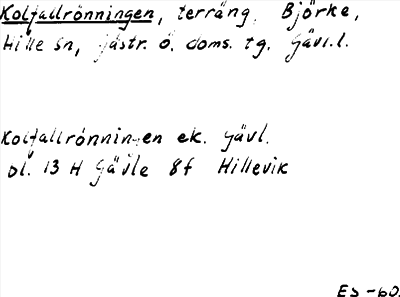 Kolfallrönningen, terräng, Björke,
Hille sn, Gästr. ö. doms. tg. Gävl.l.
Kolfallrönningen ek. Gävl.
Dl. 13 H Gävle 8f Hillevik
ES -60.